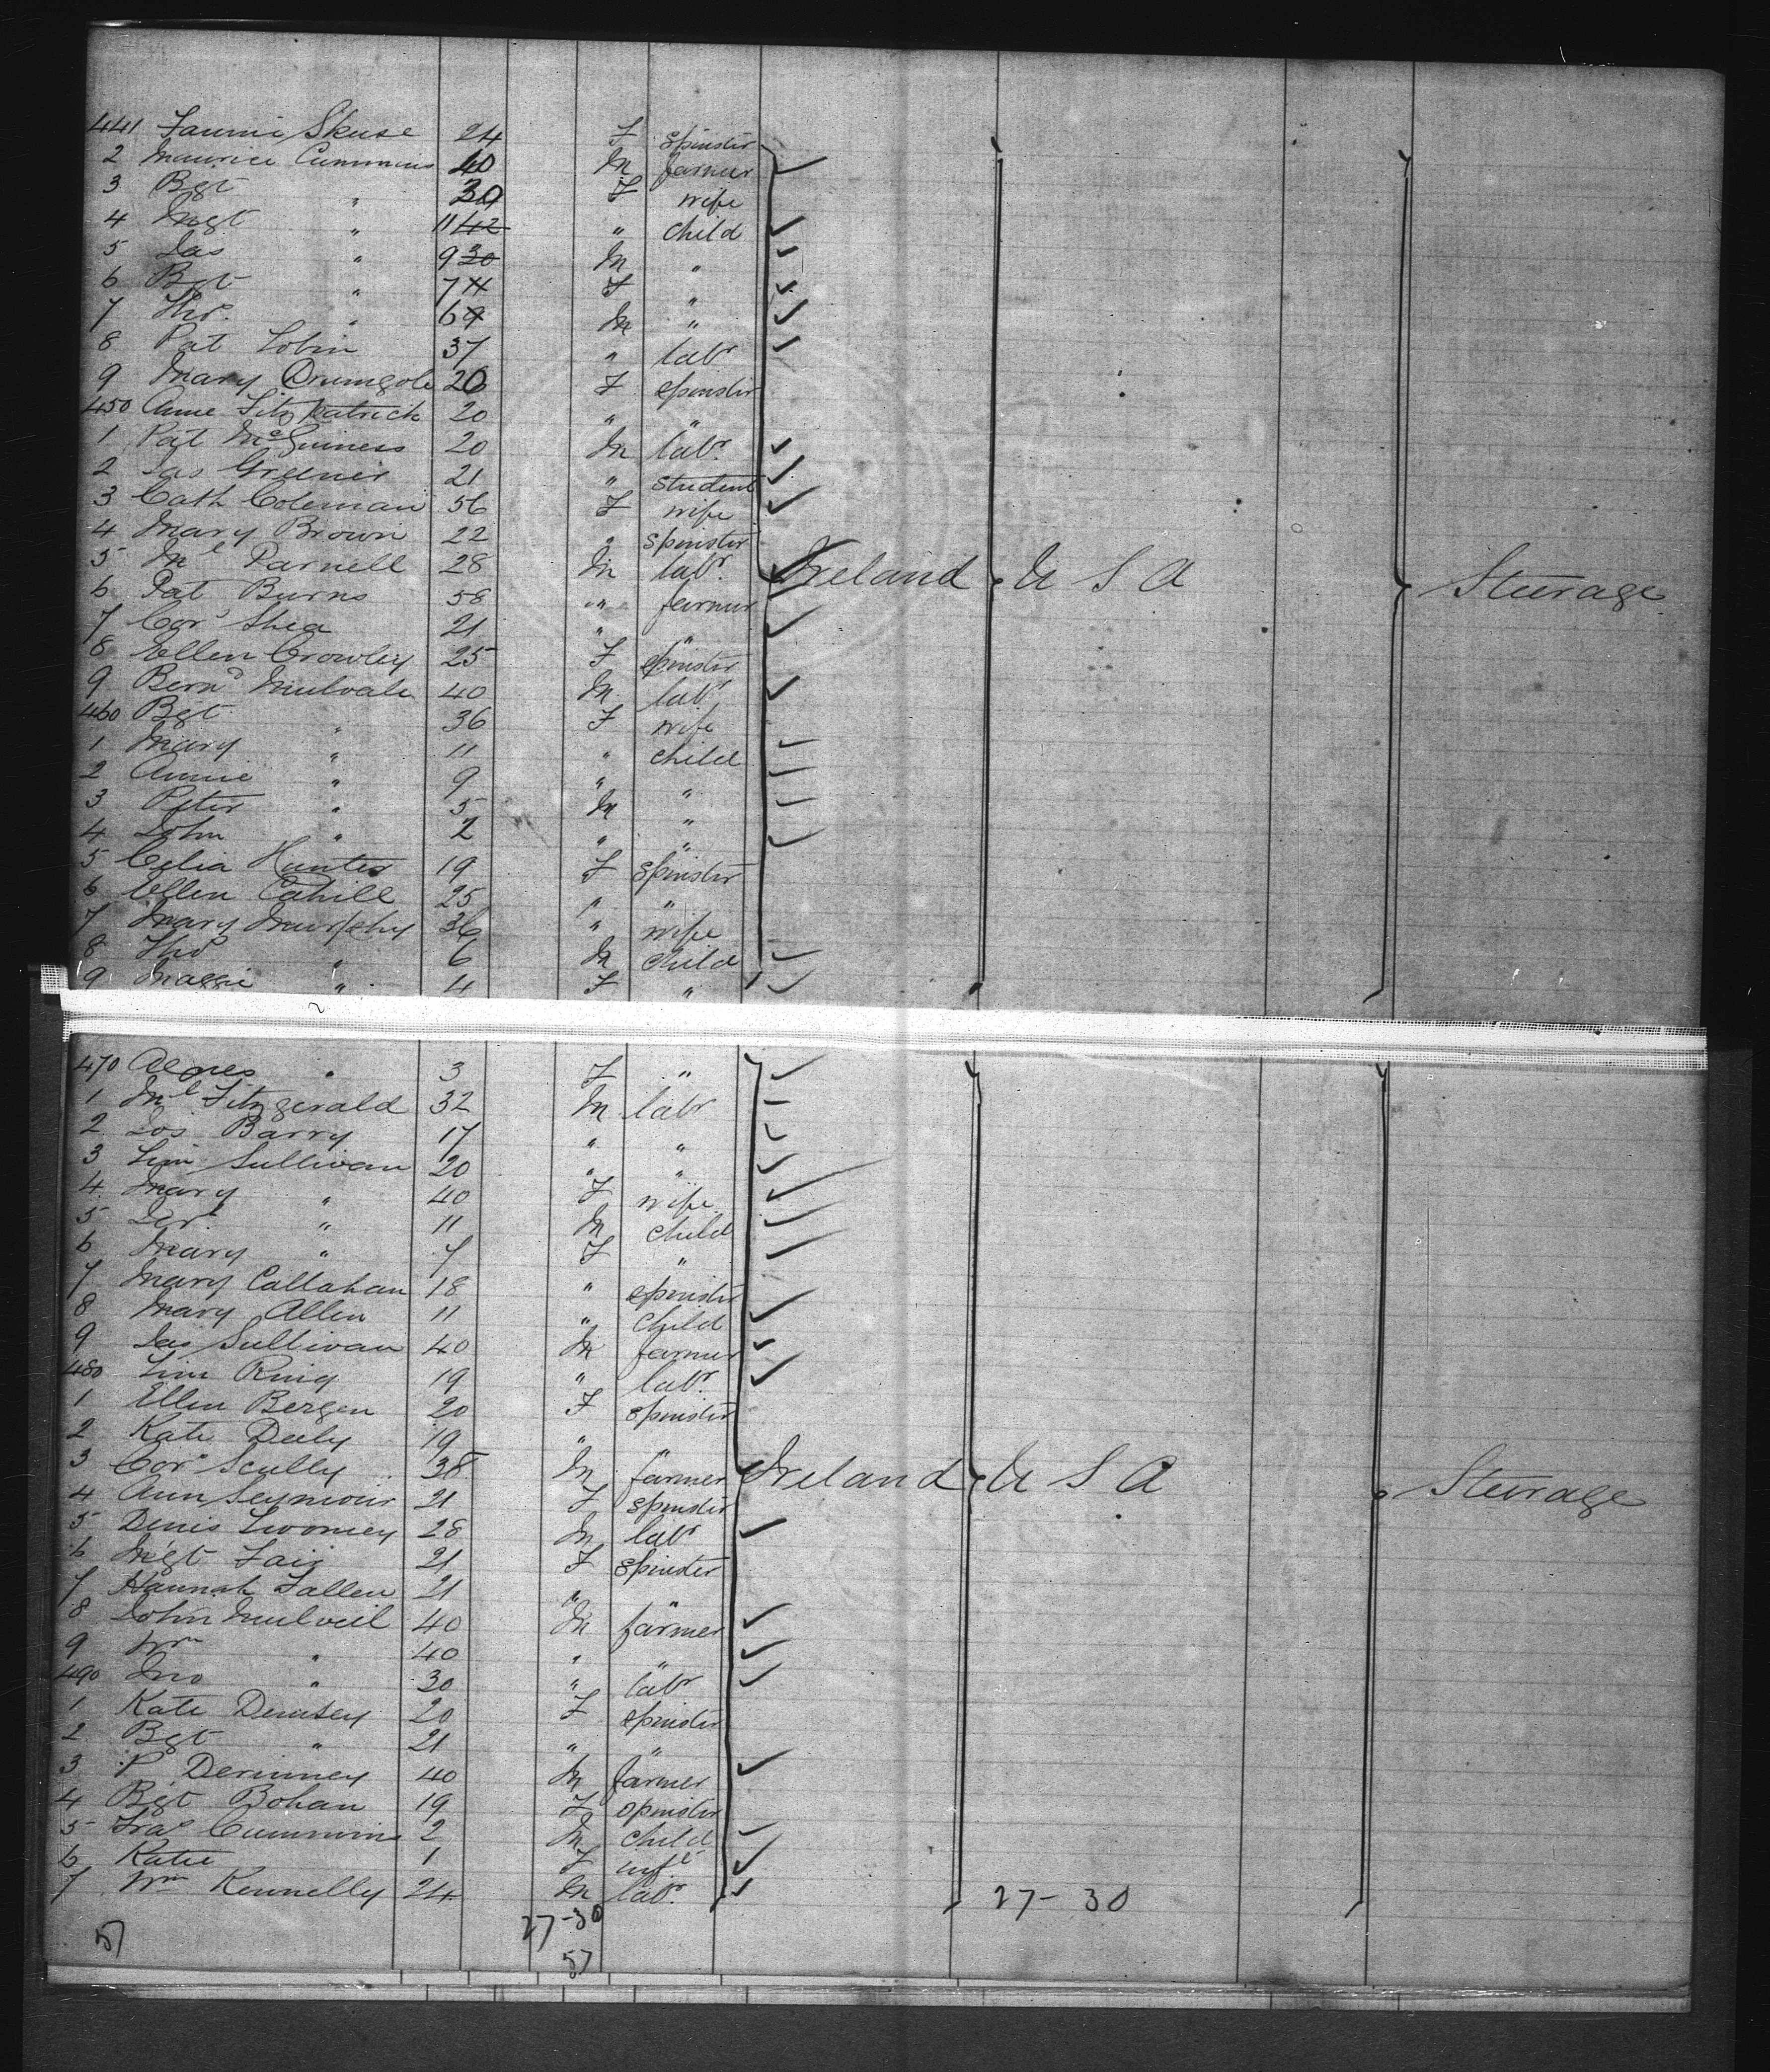 441 Fannie Skuse 24 F spinster
2 Maurice Cummins 40 M farmer
3 Bgt " 30 F wife
4 Mgt " 11 42 " child
5 Jas " 9 30 M "
6 Bgt " 7 11 F "
7 Thos. " 6 9 M "
8 Pat Tobin 37 " labr
9 Mary Drumgole 20 F spinster
450 Anne Fitzpatrick 20 " "
1 Pat McGuiness 20 M labr.
2 Jas Greener 21 " student
3 Cath Coleman 56 F wife
4 Mary Brown 22 " spinster
5 Ml Parnell 28 M labr. Ireland U S A Steerage
6 Pat Burns 58 " farmer
7 Cors Shea 21 " "
8 Ellen Crowley 25 F spinster
9 Bernd Mulvale 40 M labr
460 Bgt " 36 F wife
1 Mary " 11 " child
2 Annie " 9 " "
3 Peter " 5 M "
4 John " 2 " "
5 Celia Hunter 19 F spinster
6 Ellen Cahill 25 " "
7 Mary Murphy 36 " wife
8 Thos " 6 M child
9 Maggie " 4 F "
470 Agnes " 3 F "
1 Ml Fitzgerald 32 M labr
2 Jos Barry 17 " "
3 Tim Sullivan 20 " "
4 Mary " 40 F wife
5 Jer. " 11 M child
6 Mary " 7 F "
7 Mary Callahan 18 " spinster
8 Mary Allen 11 " child
9 Jas Sullivan 40 M farmer
480 Tim Ring 19 " labr.
1 Ellen Bergen 20 F spinster
2 Kate Deely 19 " "
3 Cors Scully 38 M farmer Ireland U S A Steerage
4 Ann Seymour 21 F spinster
5 Denis Twomey 28 M labr
6 Mgt Fair 21 F spinster
7 Hannah Fallen 21 " "
8 John Mulveil 40 M farmer
9 Wm " 40 " "
490 Jno " 30 " labr
1 Kate Demsey 20 F spinster
2 Bgt " 21 " "
3 P Derinney 40 M farmer
4 Bgt Bohan 19 F spinster
5 Fras Cummins 2 M child
6 Katie 1 F inft
7 Wm Kennelly 24 M labr.
27-30 27-30
57 57